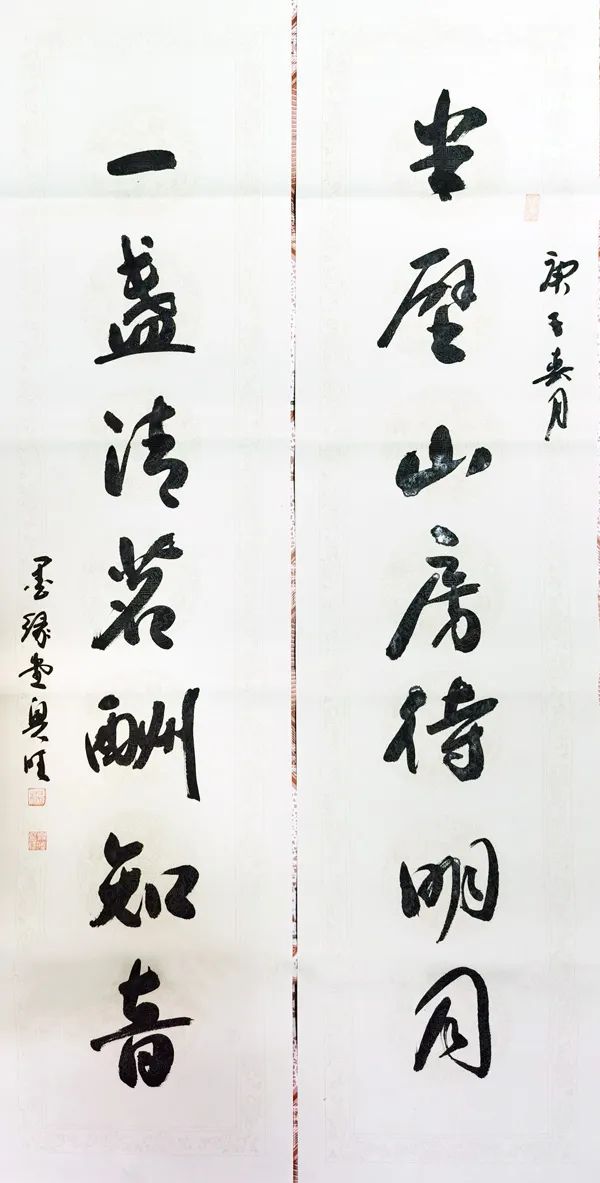 庚子春月
半壁山房待明月
一盏清茗酬知音
墨缘堂